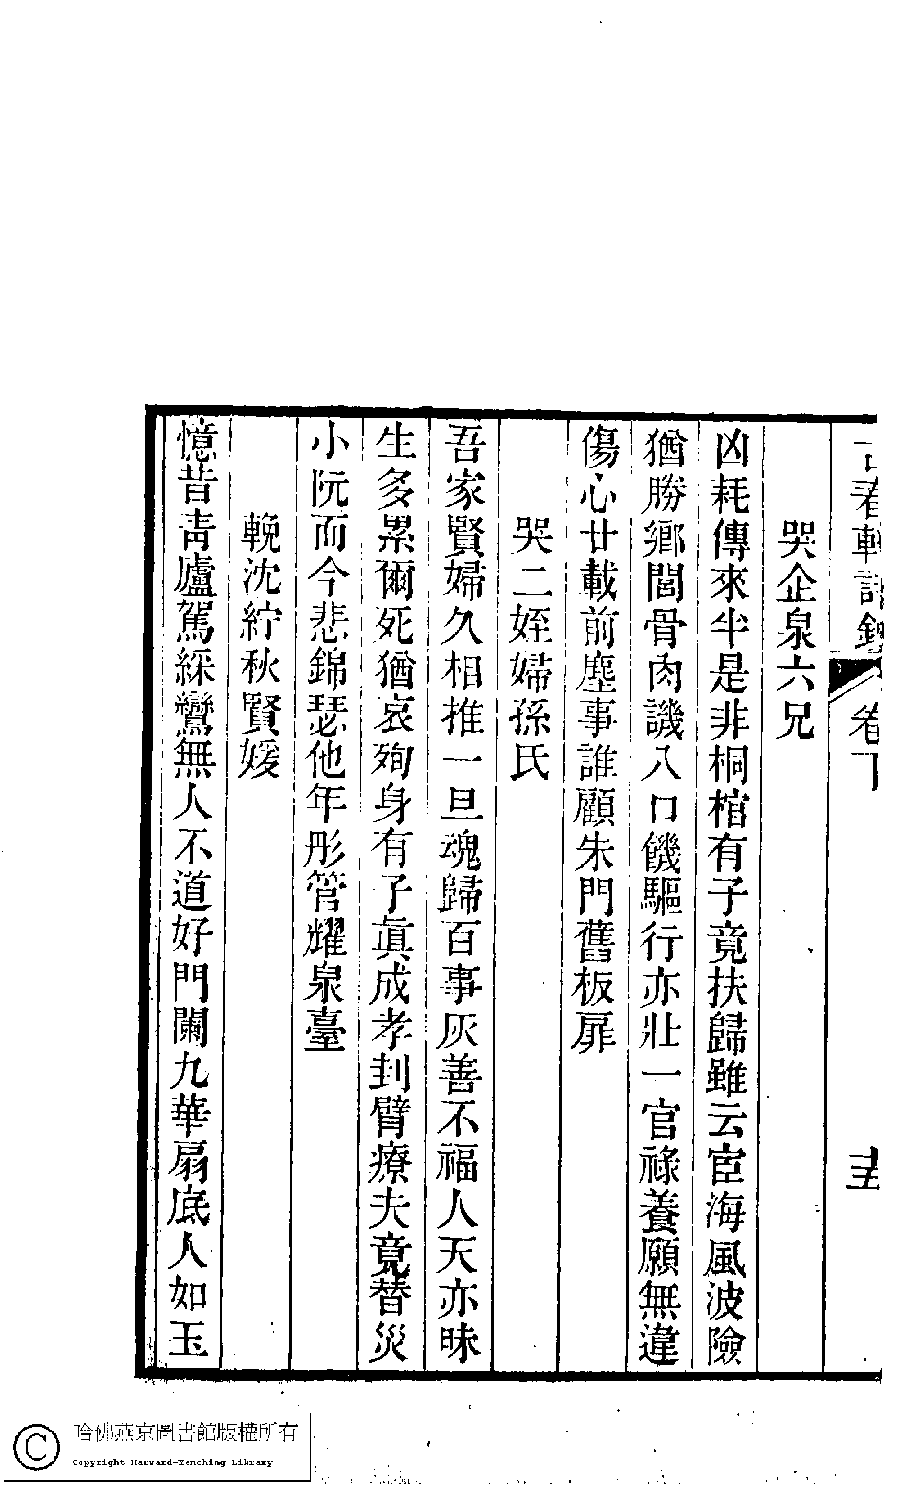 古春軒詩鈔 卷下
哭企泉六兄
凶耗傳來半是非桐棺有子竟扶歸雖云宦海風波險
猶勝鄉閭骨肉譏八口饑驅行亦壯一官祿養願無違
傷心廿載前塵事誰顧朱門舊板扉
哭二姪婦孫氏
吾家賢婦久相推一旦魂歸百事灰善不福人天亦昧
生多累爾死猶哀殉身有子眞成孝刲臂療夫竟替災
小阮而今悲錦瑟他年彤管耀泉臺
輓沈紵秋賢媛
憶昔靑廬駕綵鸞無人不道好門闌九華扇底人如玉
哈佛燕京圖書館版權所有
Copyright Harvard-Yenching Library